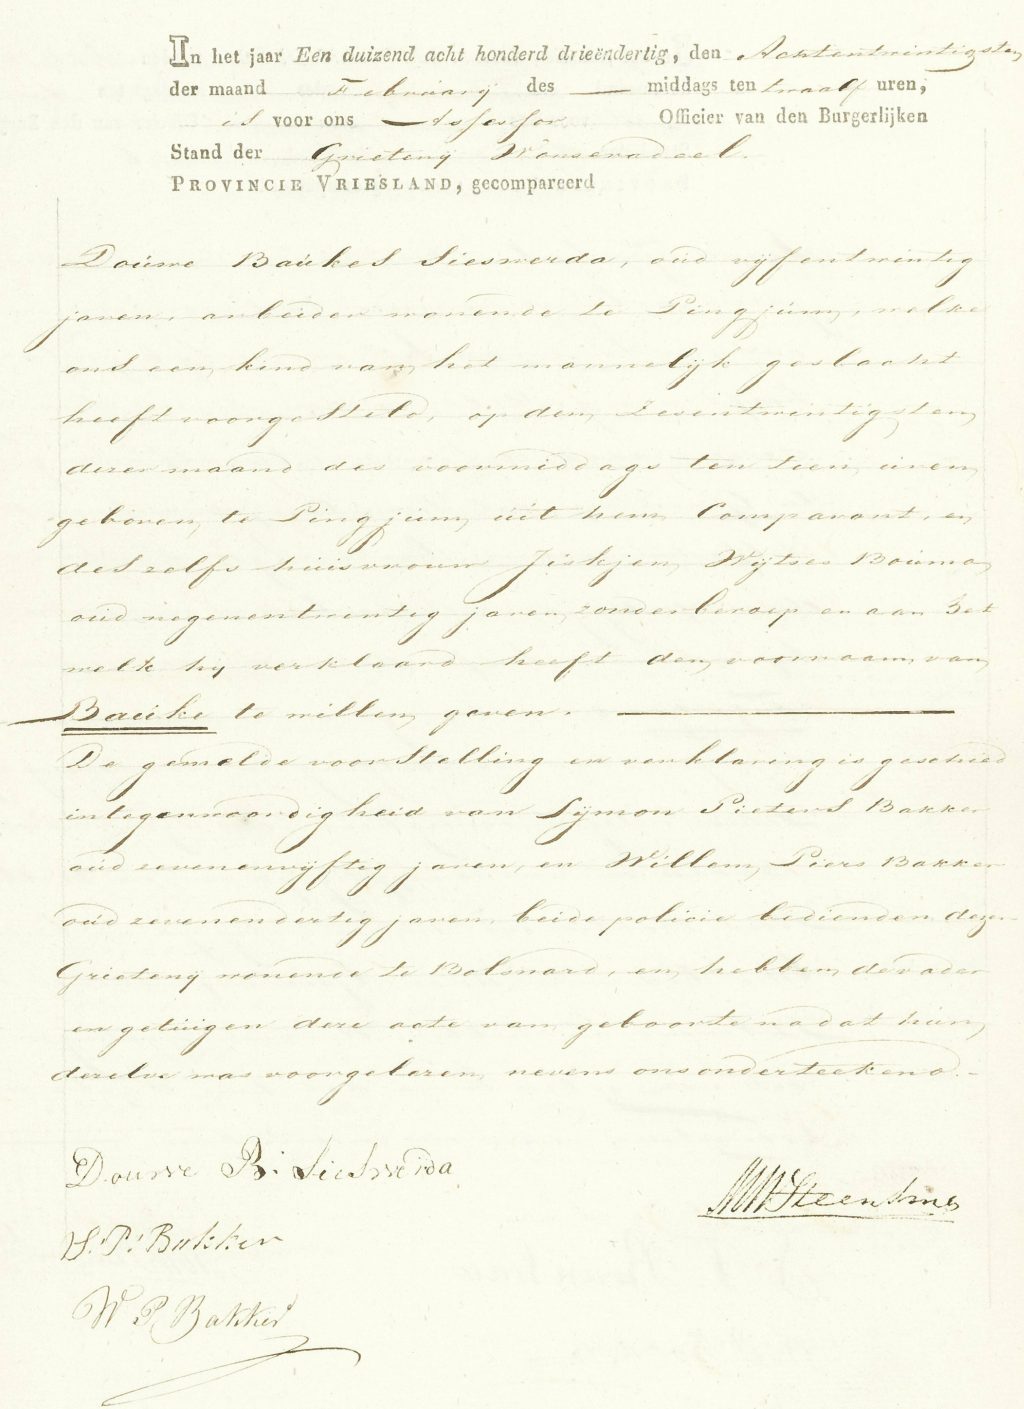 In het jaar Een duizend acht honderd drieëndertig, den Achtentwintigsten
der maand February des — middags ten twaalf uren,
is voor ons — Assessor Officier van den Burgerlijken
Stand der Grieteny Wonseradeel.
PROVINCIE VRIESLAND, gecompareerd
Douwe Baukes Sieswerda, oud vyfentwintig
jaren, arbeider wonende te Pingjum, welke
ons een kind van het mannelijk geslacht
heeft voorgesteld, op den zesentwintigsten
dezer maand des voormiddags ten tien uren
geboren, te Pingjum uit hem Comparant, en
deszelfs huisvrouw Jiskjen Wytses Bouma
oud negenentwintig jaren zonder beroep en aan het
welk hy verklaard heeft den voornaam van
Bauke te willen geven. —
De gemelde voorstelling en verklaring is geschied
in tegenwoordigheid van Symon Pieters Bakker
oud zevenenvyftig jaren, en Willem Piers Bakker
oud zevenendertig jaren, beide policie bedienden dezer
Grieteny wonende te Bolsward, en hebben de vader
en getuigen deze acte van geboorte na dat hun
dezelve was voorgelezen, nevens ons onderteekend.-
Douwe B. Sieswerda
Steensma
S. P. Bakker
W P Bakker